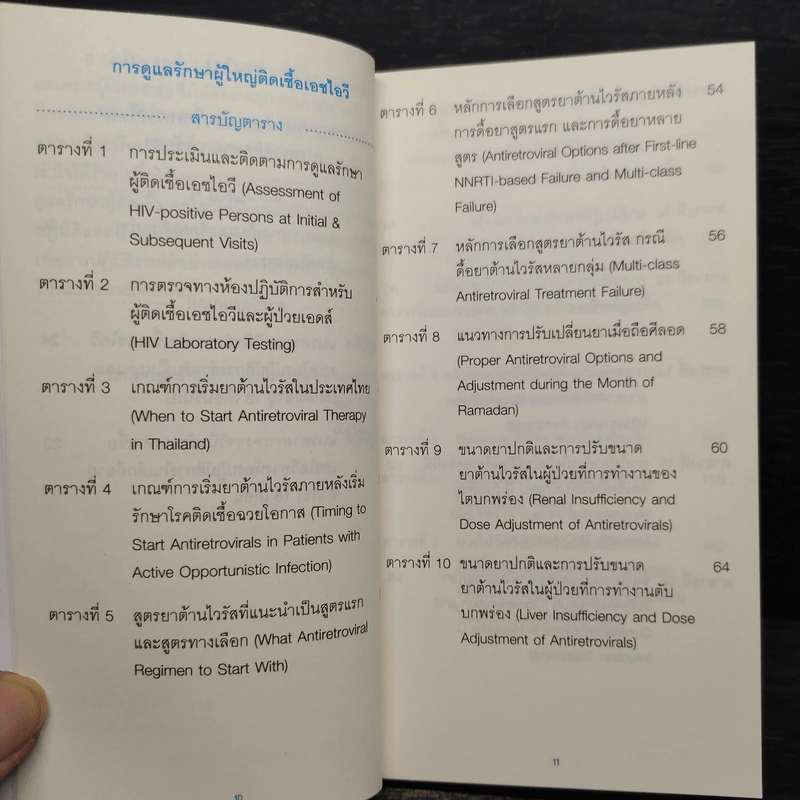 การดูแลรักษาผู้ใหญ่ติดเชื้อเอชไอวี
สารบัญตาราง
ตารางที่ 1 การประเมินและติดตามการดูแลรักษา
ผู้ติดเชื้อเอชไอวี (Assessment of
HIV-positive Persons at Initial &
Subsequent Visits)
ตารางที่ 2 การตรวจทางห้องปฏิบัติการสำหรับ
ผู้ติดเชื้อเอชไอวีและผู้ป่วยเอดส์
(HIV Laboratory Testing)
ตารางที่ 3 เกณฑ์การเริ่มยาต้านไวรัสในประเทศไทย
(When to Start Antiretroviral Therapy
in Thailand)
ตารางที่ 4 เกณฑ์การเริ่มยาต้านไวรัสภายหลังเริ่ม
รักษาโรคติดเชื้อฉวยโอกาส (Timing to
Start Antiretrovirals in Patients with
Active Opportunistic Infection)
ตารางที่ 5 สูตรยาต้านไวรัสที่แนะนำเป็นสูตรแรก
และสูตรทางเลือก (What Antiretroviral
Regimen to Start With)
10
ตารางที่ 6 หลักการเลือกสูตรยาต้านไวรัสภายหลัง 54
การดื้อยาสูตรแรก และการดื้อยาหลาย
สูตร (Antiretroviral Options after First-line
NNRTI-based Failure and Multi-class
Failure)
ตารางที่ 7 หลักการเลือกสูตรยาต้านไวรัส กรณี 56
ดื้อยาต้านไวรัสหลายกลุ่ม (Multi-class
Antiretroviral Treatment Failure)
ตารางที่ 8 แนวทางการปรับเปลี่ยนยาเมื่อถือศีลอด 58
(Proper Antiretroviral Options and
Adjustment during the Month of
Ramadan)
ตารางที่ 9 ขนาดยาปกติและการปรับขนาด 60
ยาต้านไวรัสในผู้ป่วยที่การทำงานของ
ไตบกพร่อง (Renal Insufficiency and
Dose Adjustment of Antiretrovirals)
ตารางที่ 10 ขนาดยาปกติและการปรับขนาด 64
ยาต้านไวรัสในผู้ป่วยที่การทำงานตับ
บกพร่อง (Liver Insufficiency and Dose
Adjustment of Antiretrovirals)
11